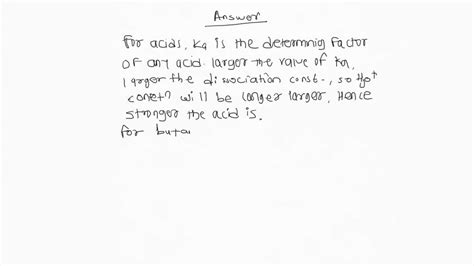 Answer
For acids, Ka is the determinig factor
of any acid. larger the value of Ka,
larger the dissociation const., so H₃O⁺
conctn will be longer larger. Hence
stronger the acid is.
for buta